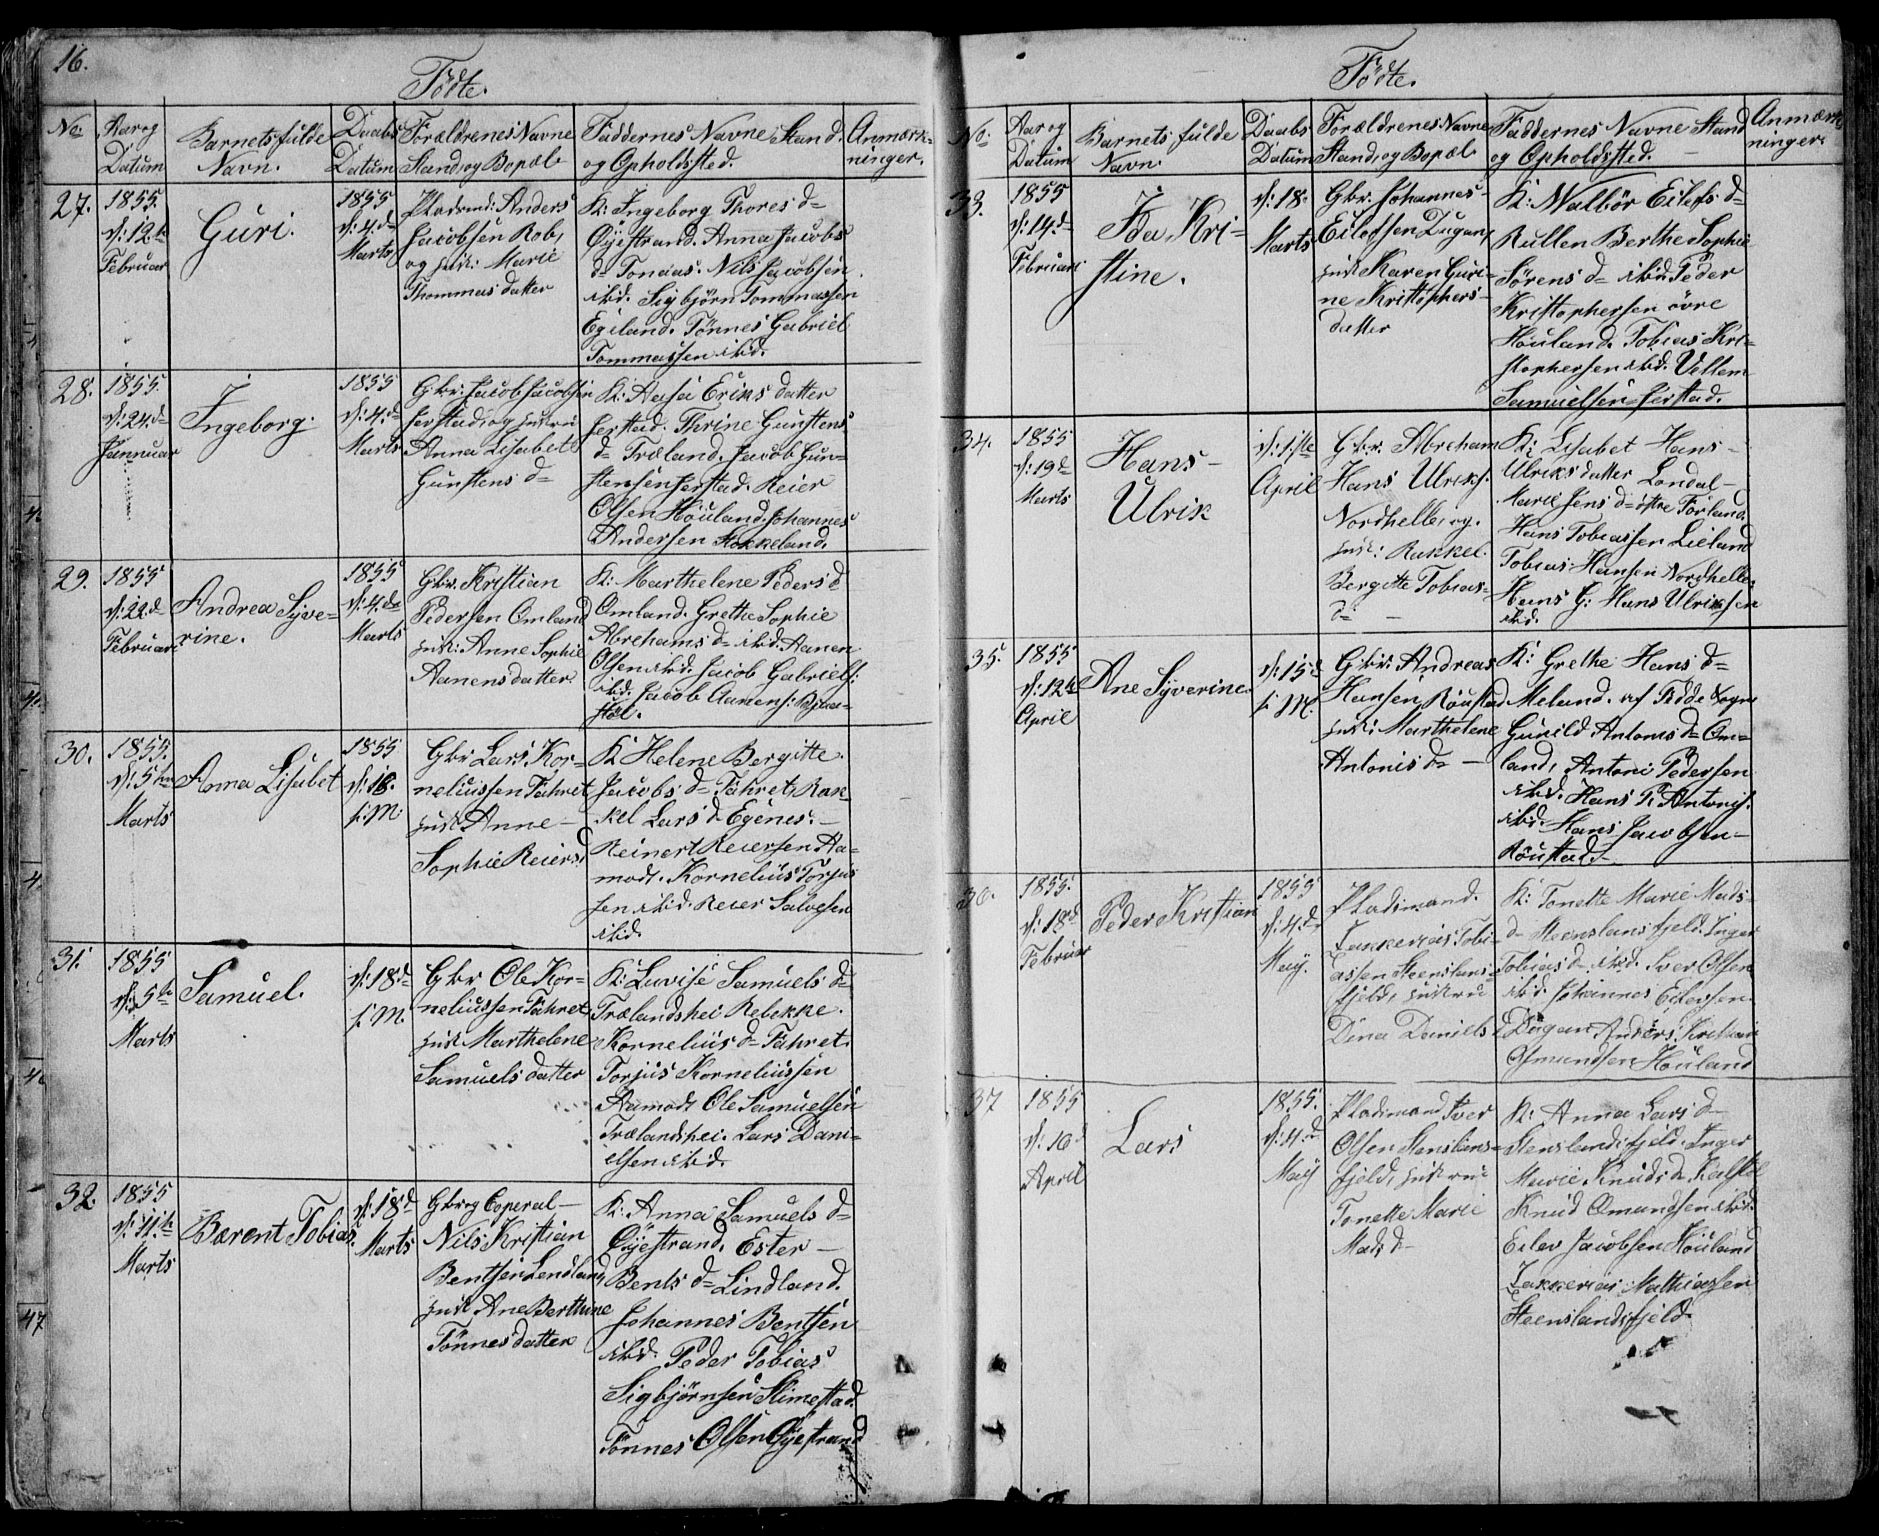 16.
Födte.
No. Aar og Datum Barnets fulde Navn. Daabs Datum Forældrenes Navne Stand, og Bopæl Faddernes Navne Stand. og Opholdsted. Anmærkninger.
27.
1855.
d: 12te
Februar
Guri.
1855
d: 4.d
Marts
Pladsmd: Anders
Jacobsen Rob,
og hust: Marie
Thommas datter
K: Ingeborg Thores d=
Öyestrand. Anna Jacobs
d= Tonaas. Nils Jacobsen
ibid. Sigbjörn Tommassen
Egeland. Tönnes Gabriel
Tommassen ibid.
28.
1855.
d: 24.d
Januar
Ingeborg.
1855
d: 4.d
Marts
Gbr: Jacob Jacobsen
Jerstad, og hustru
Anna Lisabet
Gunstens d=
K: Aasa Eriks datter
Jerstad. Thrine Gunstens
d= Træland. Jacob Gun=
stensen Jerstad. Reier
Olsen Höuland. Johannes
Andersen Stokkeland.
29.
1855
d: 22d
Februari
Andrea Syve=
rine.
1855
d: 4.de
Marts
Gbr. Kristian
Pedersen Omland
hust: Anne Sophie
Aanens datter
K: Marthelene Peders d
Omland. Grethe Sophie
Abrehams d= ibid. Aanen
Olsen ibid. Jacob Gabriels:
ibid. Jacob Aanens:
30.
1855.
d: 5te
Marts
Anna Lisabet
1855
d: 18.
s: M.
Gbr Lars Kor=
neliussen Tähret
hust Anne
Sophie Reiersd
K Helene Bergitte
Jacobs d= Tähret, Rak=
kel Lars d Egenes.
Reinert Reiersen Aa=
modt. Kornelius Torjus
sen ibid. Reier Salvesen
ibid.
31.
1855
d: 5te
Marts
Samuel.
d: 18d
s: M.
Gbr Ole Kor=
neliussen Tähret
hust Marthelene
Samuels datter
K: Luvise Samuels d=
Trælandshei Rebekke
Kornelius d= Tähret.
Torjus Korneliussen
Aamodt Ole Samuelsen
Trælandshei. Lars Dani=
elsen ibid.
32
1855
d: 11.te
Marts
Barent Tobias.
d: 18d
Marts
Gbr og Coperal
Nils Kristian
Bentsen Lendland
hust Ane Berthine
Tönnes datter
K: Anna Samuels d=
Öyestrand. Ester
Bents d= Lindland.
Johannes Bentsen
ibid. Peder Tobias
Sigbjörnsen Slimestad.
Tönnes Olsen Öyestrand
Födte.
No: Aar og Datum Barnets fulde Navn. Daabs Datum Forældrenes Navne Stand, og Bopæl Faddernes Navne Stand og Opholdsted. Anmærkninger
33.
1855
d: 14.d
Februari
Ida Kri=
stine.
d: 18.
Marts
Gbr. Johannes
Eilefsen Dugan,
hust Karen Guri=
ne Kristophers
datter
K: Walbör Eilefs d=
Rullen Berthe Sophie
Sörens d= ibid. Peder
Kristophersen övre
Höuland. Tobias Kri=
stophersen ibid. Villem
Samuelsen Jerstad.
34.
1855
d: 19d
Marts
Hans
Ulrik
d: 1ste
April
Gbr. Abreham
Hans Ulriks:
Nordhelle, og
hust: Rakkel
Bergitte Tobias=
d=
K: Lisabet Hans
Ulriks datter Londal
Marie Jens d= östre Förland
Hans Tobiassen Lieland
Tobias Hansen Nordhelle.
Hans G: Hans Ulriksen
ibid.
35.
1855
d: 12te
April
Ane Syverine
d: 15d
s: M.
Gbr: Andreas
Hansen Röustad
hust: Marthelene
Antonis d=
K: Grethe Hans d=
Meland. af Fedde Sogn
Gunild Antonis d= Om=
land, Antoni Pedersen
ibid. Hans P. Antonis:
ibid. Hans Jacobsen
Röustad.
36.
1855.
d: 18d
Februar
Peder Kristian
1855
d: 4.de
Maij.
Pladsmand.
Zakkerias Tobi=
assen Steenslans=
fjeld, hustru
Dina Daniels d
K: Tonette Marie Mads
d= Steenslansfjeld. Inger
Tobias d= ibid. Iver Olsen
ibid. Johannes Eilevsen
Dugan. Anders Kristian
Osmundsen Höuland
37
1855
d: 16d
April
Lars
1855.
d: 4.d
Maij
Pladsmand Iver
Olsen Stenslans=
fjeld, hustru
Tonette Marie
Mads d=
K: Anna Lars d=
Stenslandsfjeld. Inger
Marie Knuds d=
Knud Omundsen ibid.
Eilev Jacobsen Höuland
Zakkerias Mathiassen
Steenslandsfjeld.
47